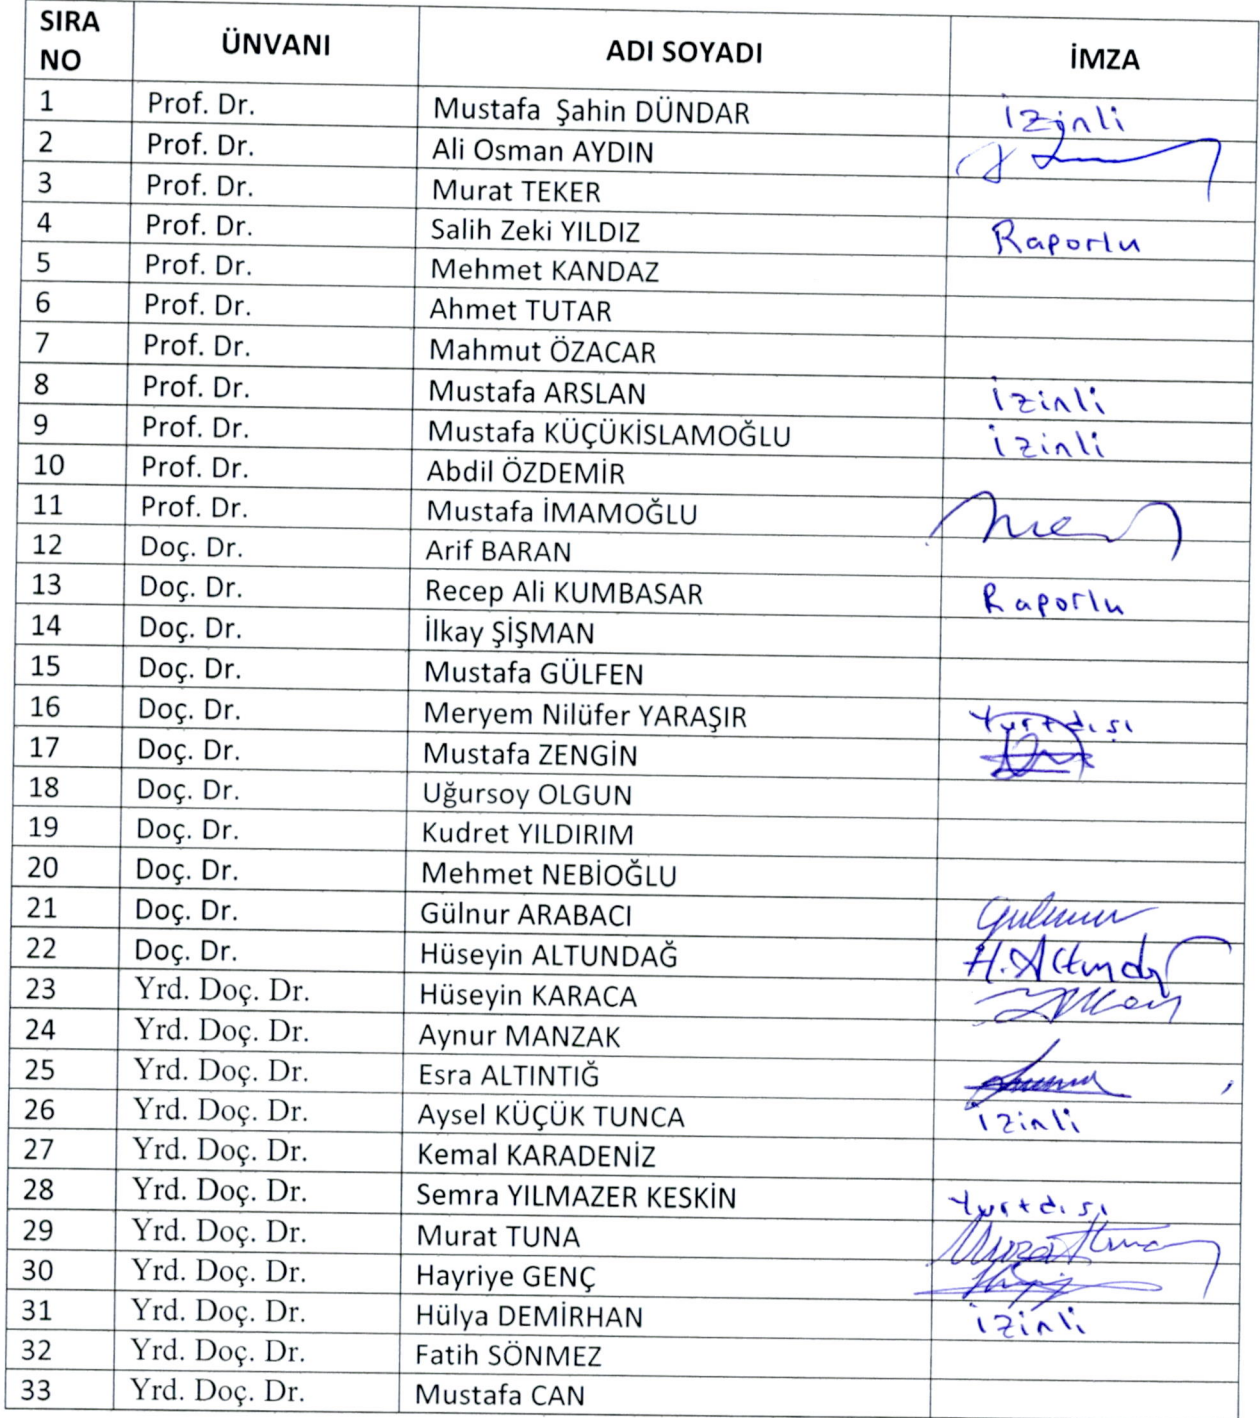 SIRA NO ÜNVANI ADI SOYADI İMZA
1 Prof. Dr. Mustafa Şahin DÜNDAR İzinli
2 Prof. Dr. Ali Osman AYDIN
3 Prof. Dr. Murat TEKER
4 Prof. Dr. Salih Zeki YILDIZ Raporlu
5 Prof. Dr. Mehmet KANDAZ
6 Prof. Dr. Ahmet TUTAR
7 Prof. Dr. Mahmut ÖZACAR
8 Prof. Dr. Mustafa ARSLAN İzinli
9 Prof. Dr. Mustafa KÜÇÜKİSLAMOĞLU İzinli
10 Prof. Dr. Abdil ÖZDEMİR
11 Prof. Dr. Mustafa İMAMOĞLU
12 Doç. Dr. Arif BARAN
13 Doç. Dr. Recep Ali KUMBASAR Raporlu
14 Doç. Dr. İlkay ŞİŞMAN
15 Doç. Dr. Mustafa GÜLFEN
16 Doç. Dr. Meryem Nilüfer YARAŞIR Yurtdışı
17 Doç. Dr. Mustafa ZENGİN
18 Doç. Dr. Uğursoy OLGUN
19 Doç. Dr. Kudret YILDIRIM
20 Doç. Dr. Mehmet NEBİOĞLU
21 Doç. Dr. Gülnur ARABACI Gulnur
22 Doç. Dr. Hüseyin ALTUNDAĞ H. Altundağ
23 Yrd. Doç. Dr. Hüseyin KARACA
24 Yrd. Doç. Dr. Aynur MANZAK
25 Yrd. Doç. Dr. Esra ALTINTIĞ
26 Yrd. Doç. Dr. Aysel KÜÇÜK TUNCA İzinli
27 Yrd. Doç. Dr. Kemal KARADENİZ
28 Yrd. Doç. Dr. Semra YILMAZER KESKİN Yurtdışı
29 Yrd. Doç. Dr. Murat TUNA Murat Tuna
30 Yrd. Doç. Dr. Hayriye GENÇ
31 Yrd. Doç. Dr. Hülya DEMİRHAN İzinli
32 Yrd. Doç. Dr. Fatih SÖNMEZ
33 Yrd. Doç. Dr. Mustafa CAN